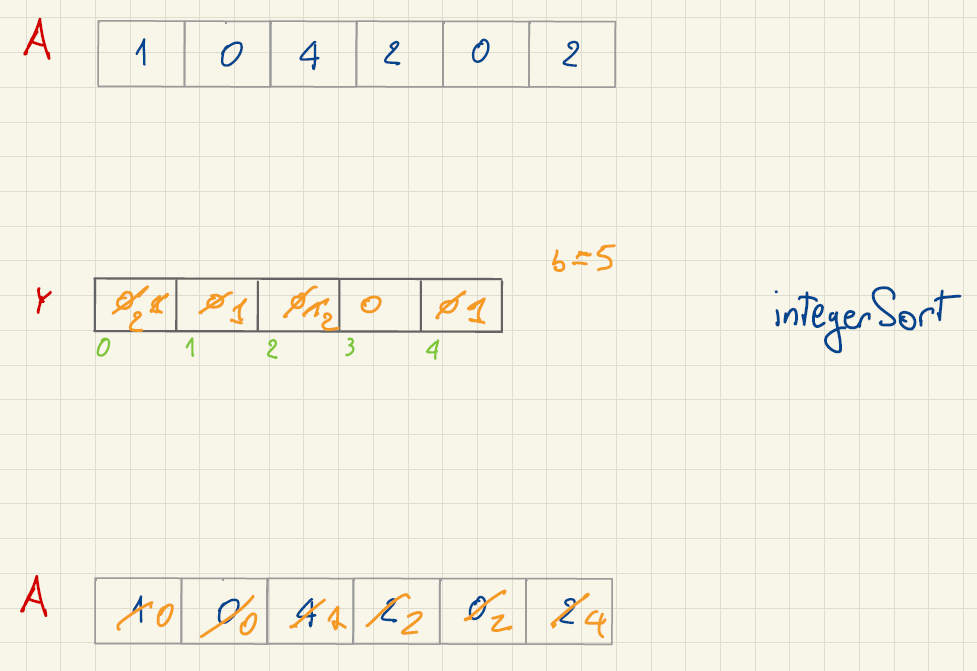 A 1 0 4 2 0 2
b=5
Y 0 1 2 0 1 0 1 2 0 0 1
integerSort
0 1 2 3 4
A 1 0 0 0 4 1 2 2 0 2 2 4